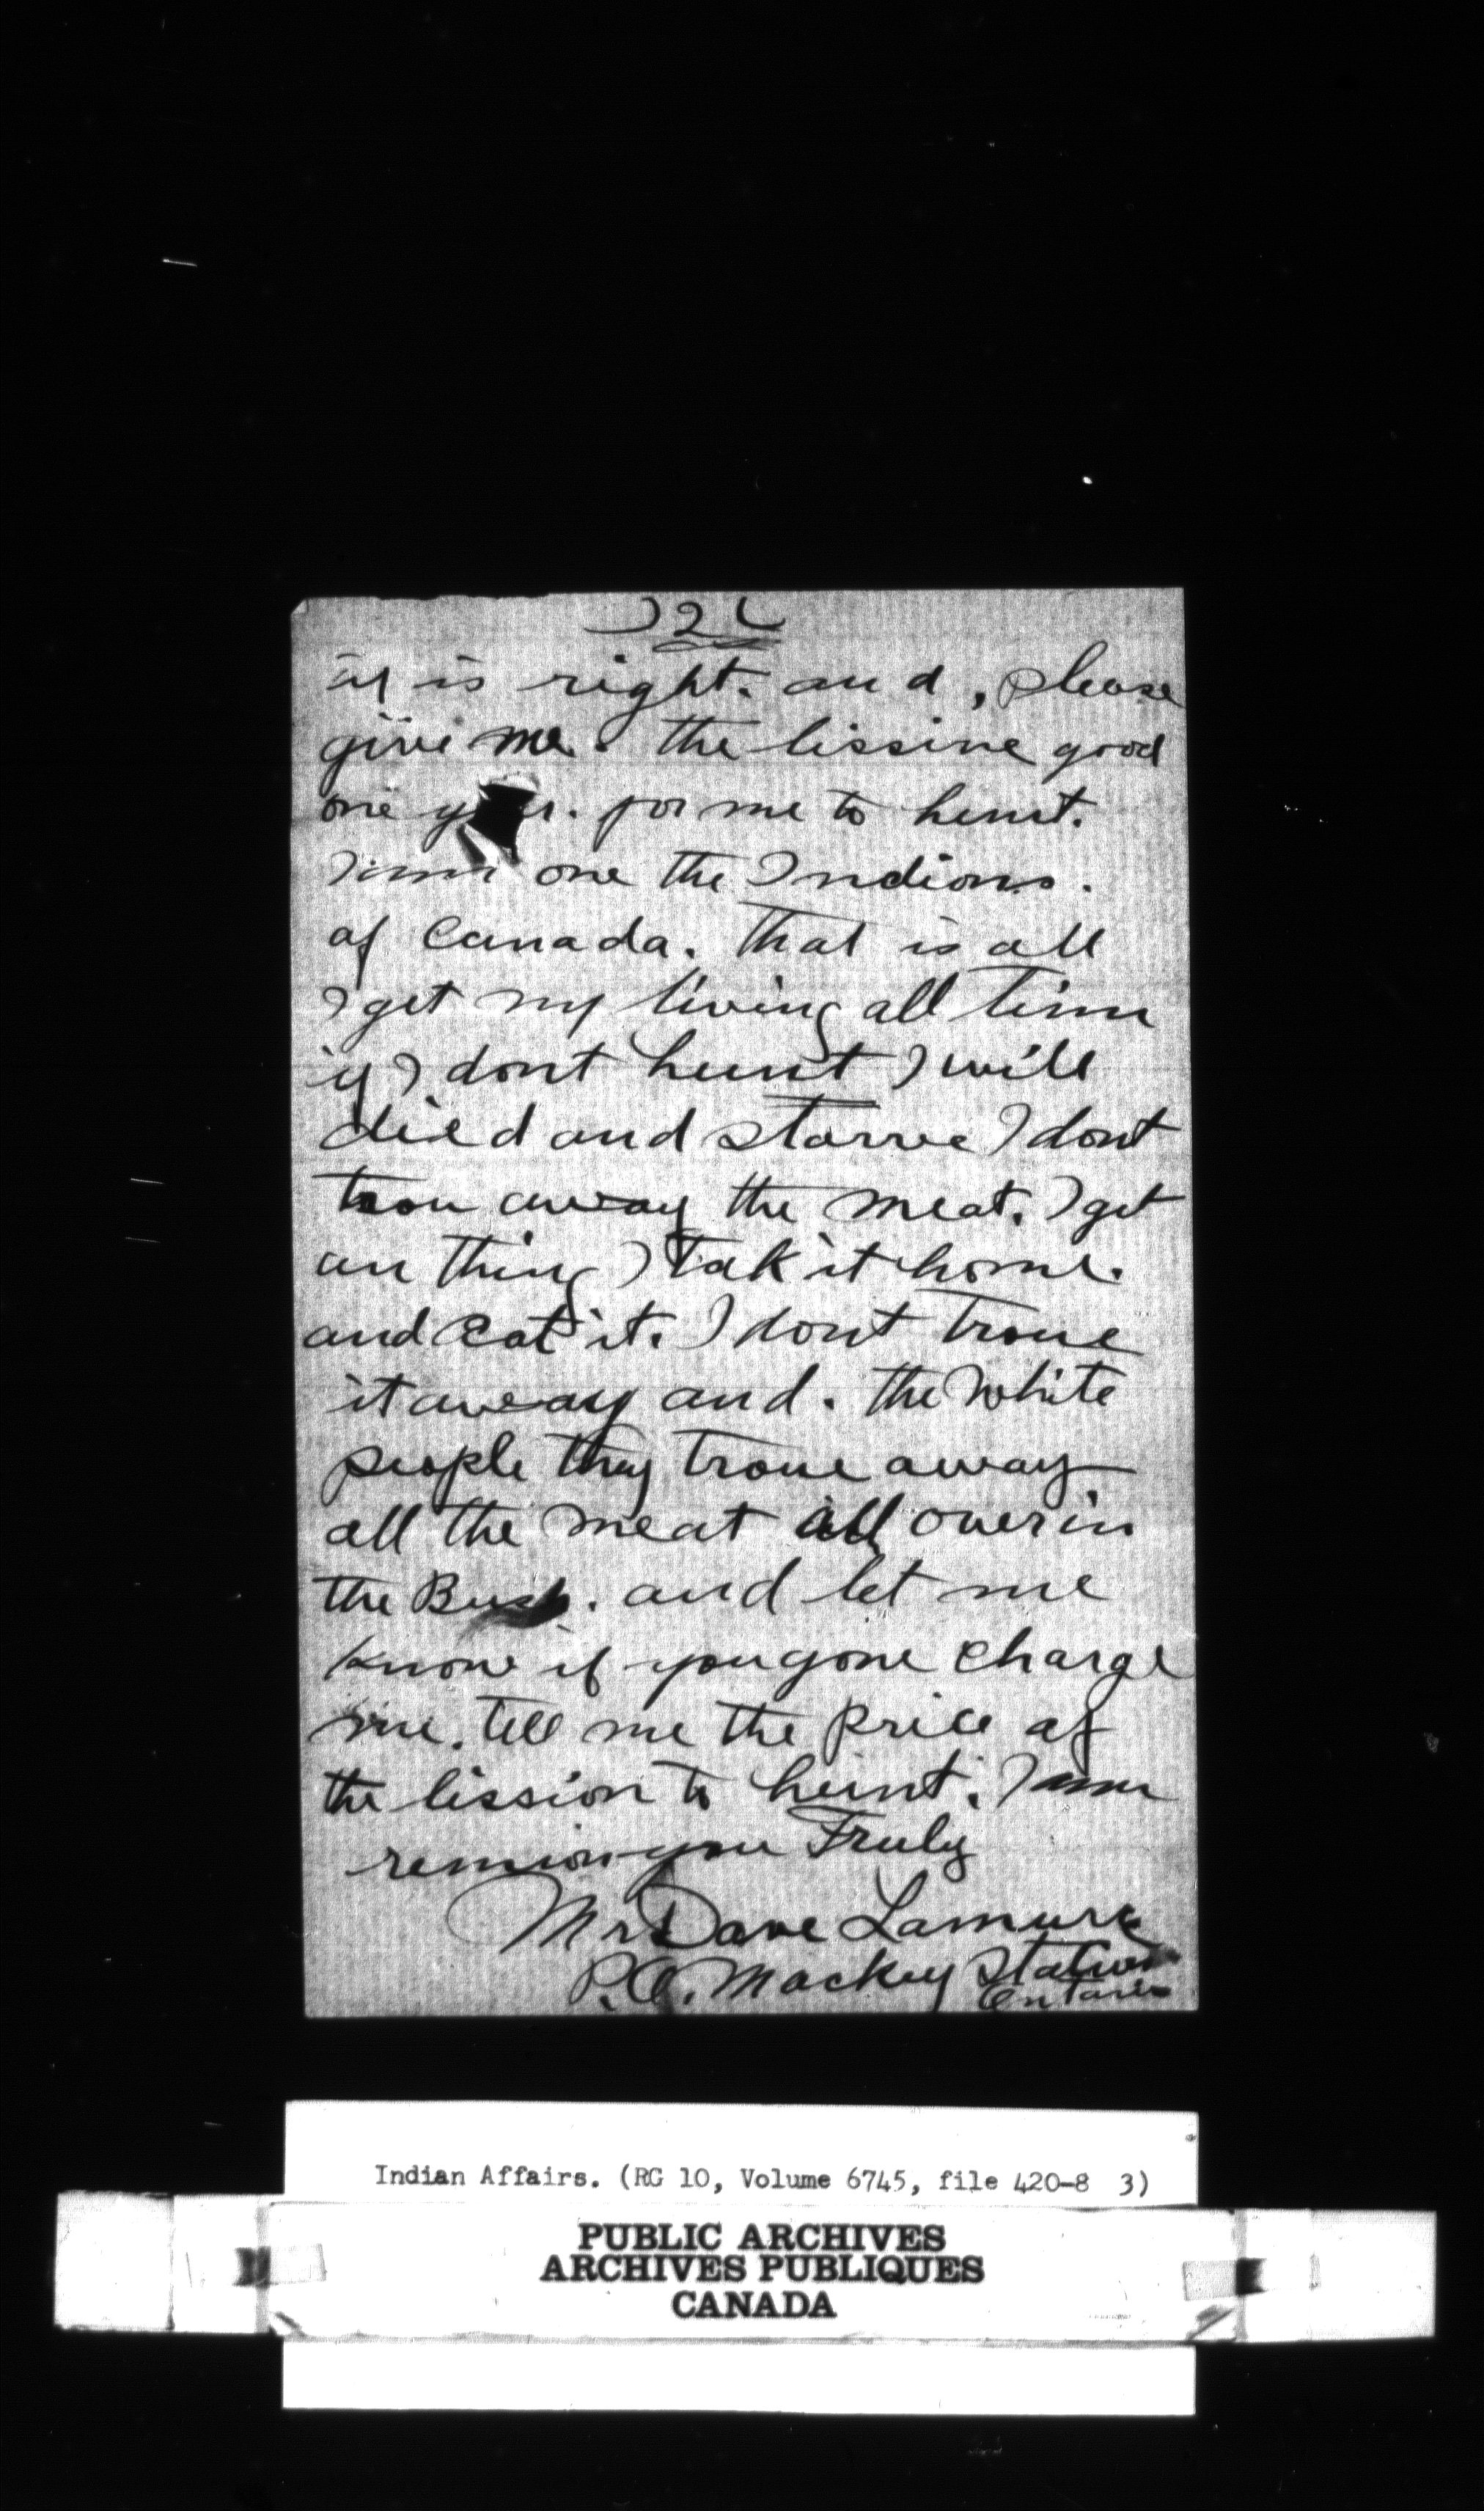 2
it is right. and, please
give me. the lissine good
one for me to hunt.
I am one the Indians.
of Canada. That is all
I get my living all time
if I dont hunt I will
died and starve I dont
trou away the meat. I get
an thing I tak it home.
and eat it. I dont troue
it away and. the White
people they troue away
all the meat all over in
the Bush. and let me
know if you gone charge
me. tell me the price of
the lission to hunt. I am
remion you Truly
Mr Dave Lamure
P.O. Mackey Station
Ontario
Indian Affairs. (RG 10, Volume 6745, file 420-8 3)
PUBLIC ARCHIVES
ARCHIVES PUBLIQUES
CANADA